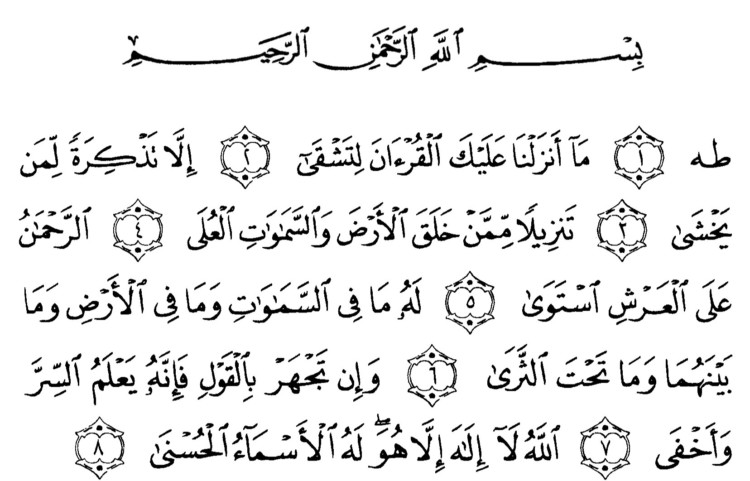 بِسْمِ ٱللَّهِ ٱلرَّحْمَٰنِ ٱلرَّحِيمِ
طه ١ مَآ أَنزَلْنَا عَلَيْكَ ٱلْقُرْءَانَ لِتَشْقَىٰٓ ٢ إِلَّا تَذْكِرَةً لِّمَن
يَخْشَىٰ ٣ تَنزِيلًا مِّمَّنْ خَلَقَ ٱلْأَرْضَ وَٱلسَّمَٰوَٰتِ ٱلْعُلَى ٤ ٱلرَّحْمَٰنُ
عَلَى ٱلْعَرْشِ ٱسْتَوَىٰ ٥ لَهُۥ مَا فِى ٱلسَّمَٰوَٰتِ وَمَا فِى ٱلْأَرْضِ وَمَا
بَيْنَهُمَا وَمَا تَحْتَ ٱلثَّرَىٰ ٦ وَإِن تَجْهَرْ بِٱلْقَوْلِ فَإِنَّهُۥ يَعْلَمُ ٱلسِّرَّ
وَأَخْفَى ٧ ٱللَّهُ لَآ إِلَٰهَ إِلَّا هُوَ ۖ لَهُ ٱلْأَسْمَآءُ ٱلْحُسْنَىٰ ٨